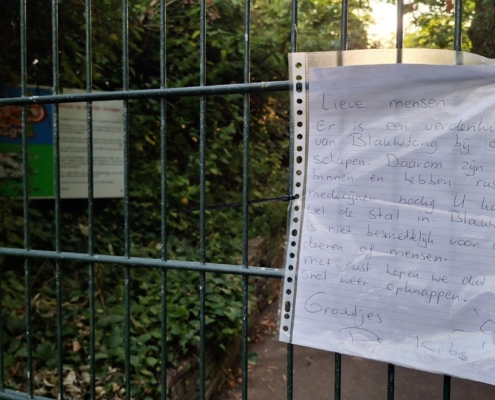 Lieve mensen
Er is een verdenk
van Blauwtong bij
schapen. Daarom zijn
binnen en hebben rus
medicijnen nodig U
wel de stal in. Blauw
is niet besmetlijk voor
dieren of mensen.
met rust hopen we dat
snel weer opknappen.
Groetjes
De Kibo